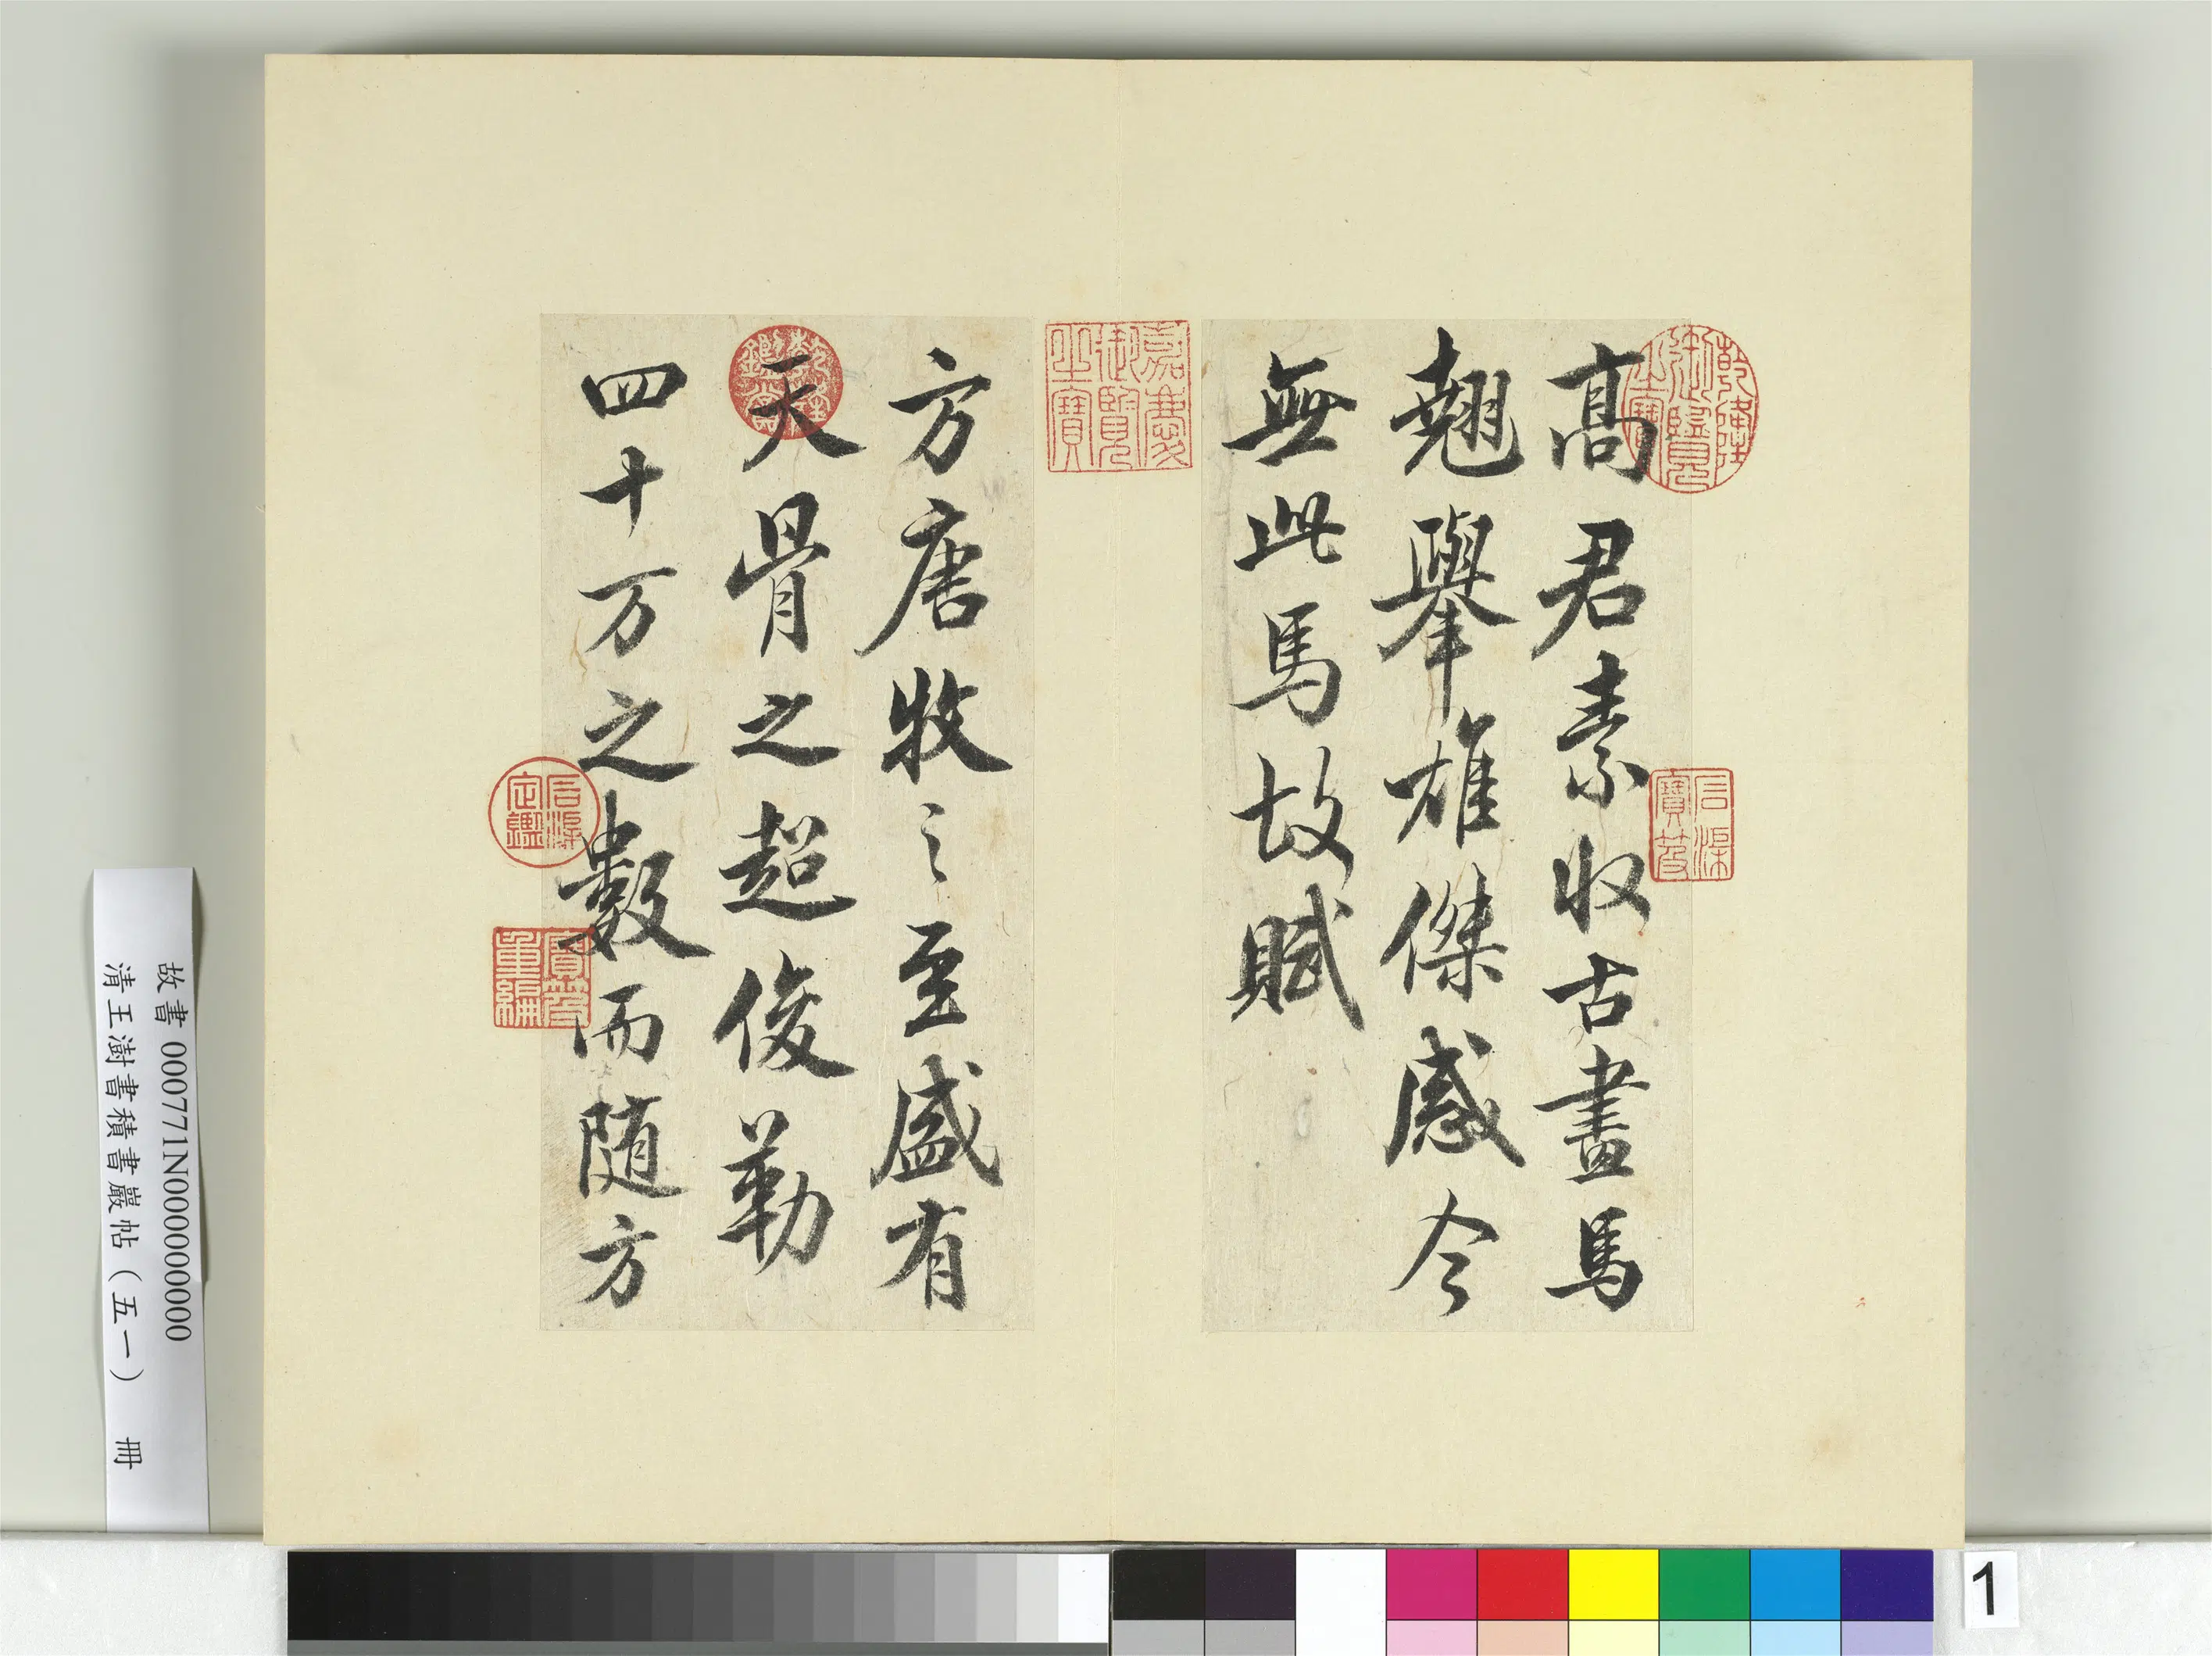 高君素收古畫馬
翹舉雄傑感今
無此馬故賦
方唐牧之至盛有
天骨之超俊勒
四十万之數而随方
乾隆御覽之寶
石渠寶笈
嘉慶御覽之寶
乾隆鑑賞
石渠定鑑
寶笈重編
故書 000771N000000000
清王澍書積書巖帖（五一） 冊
1